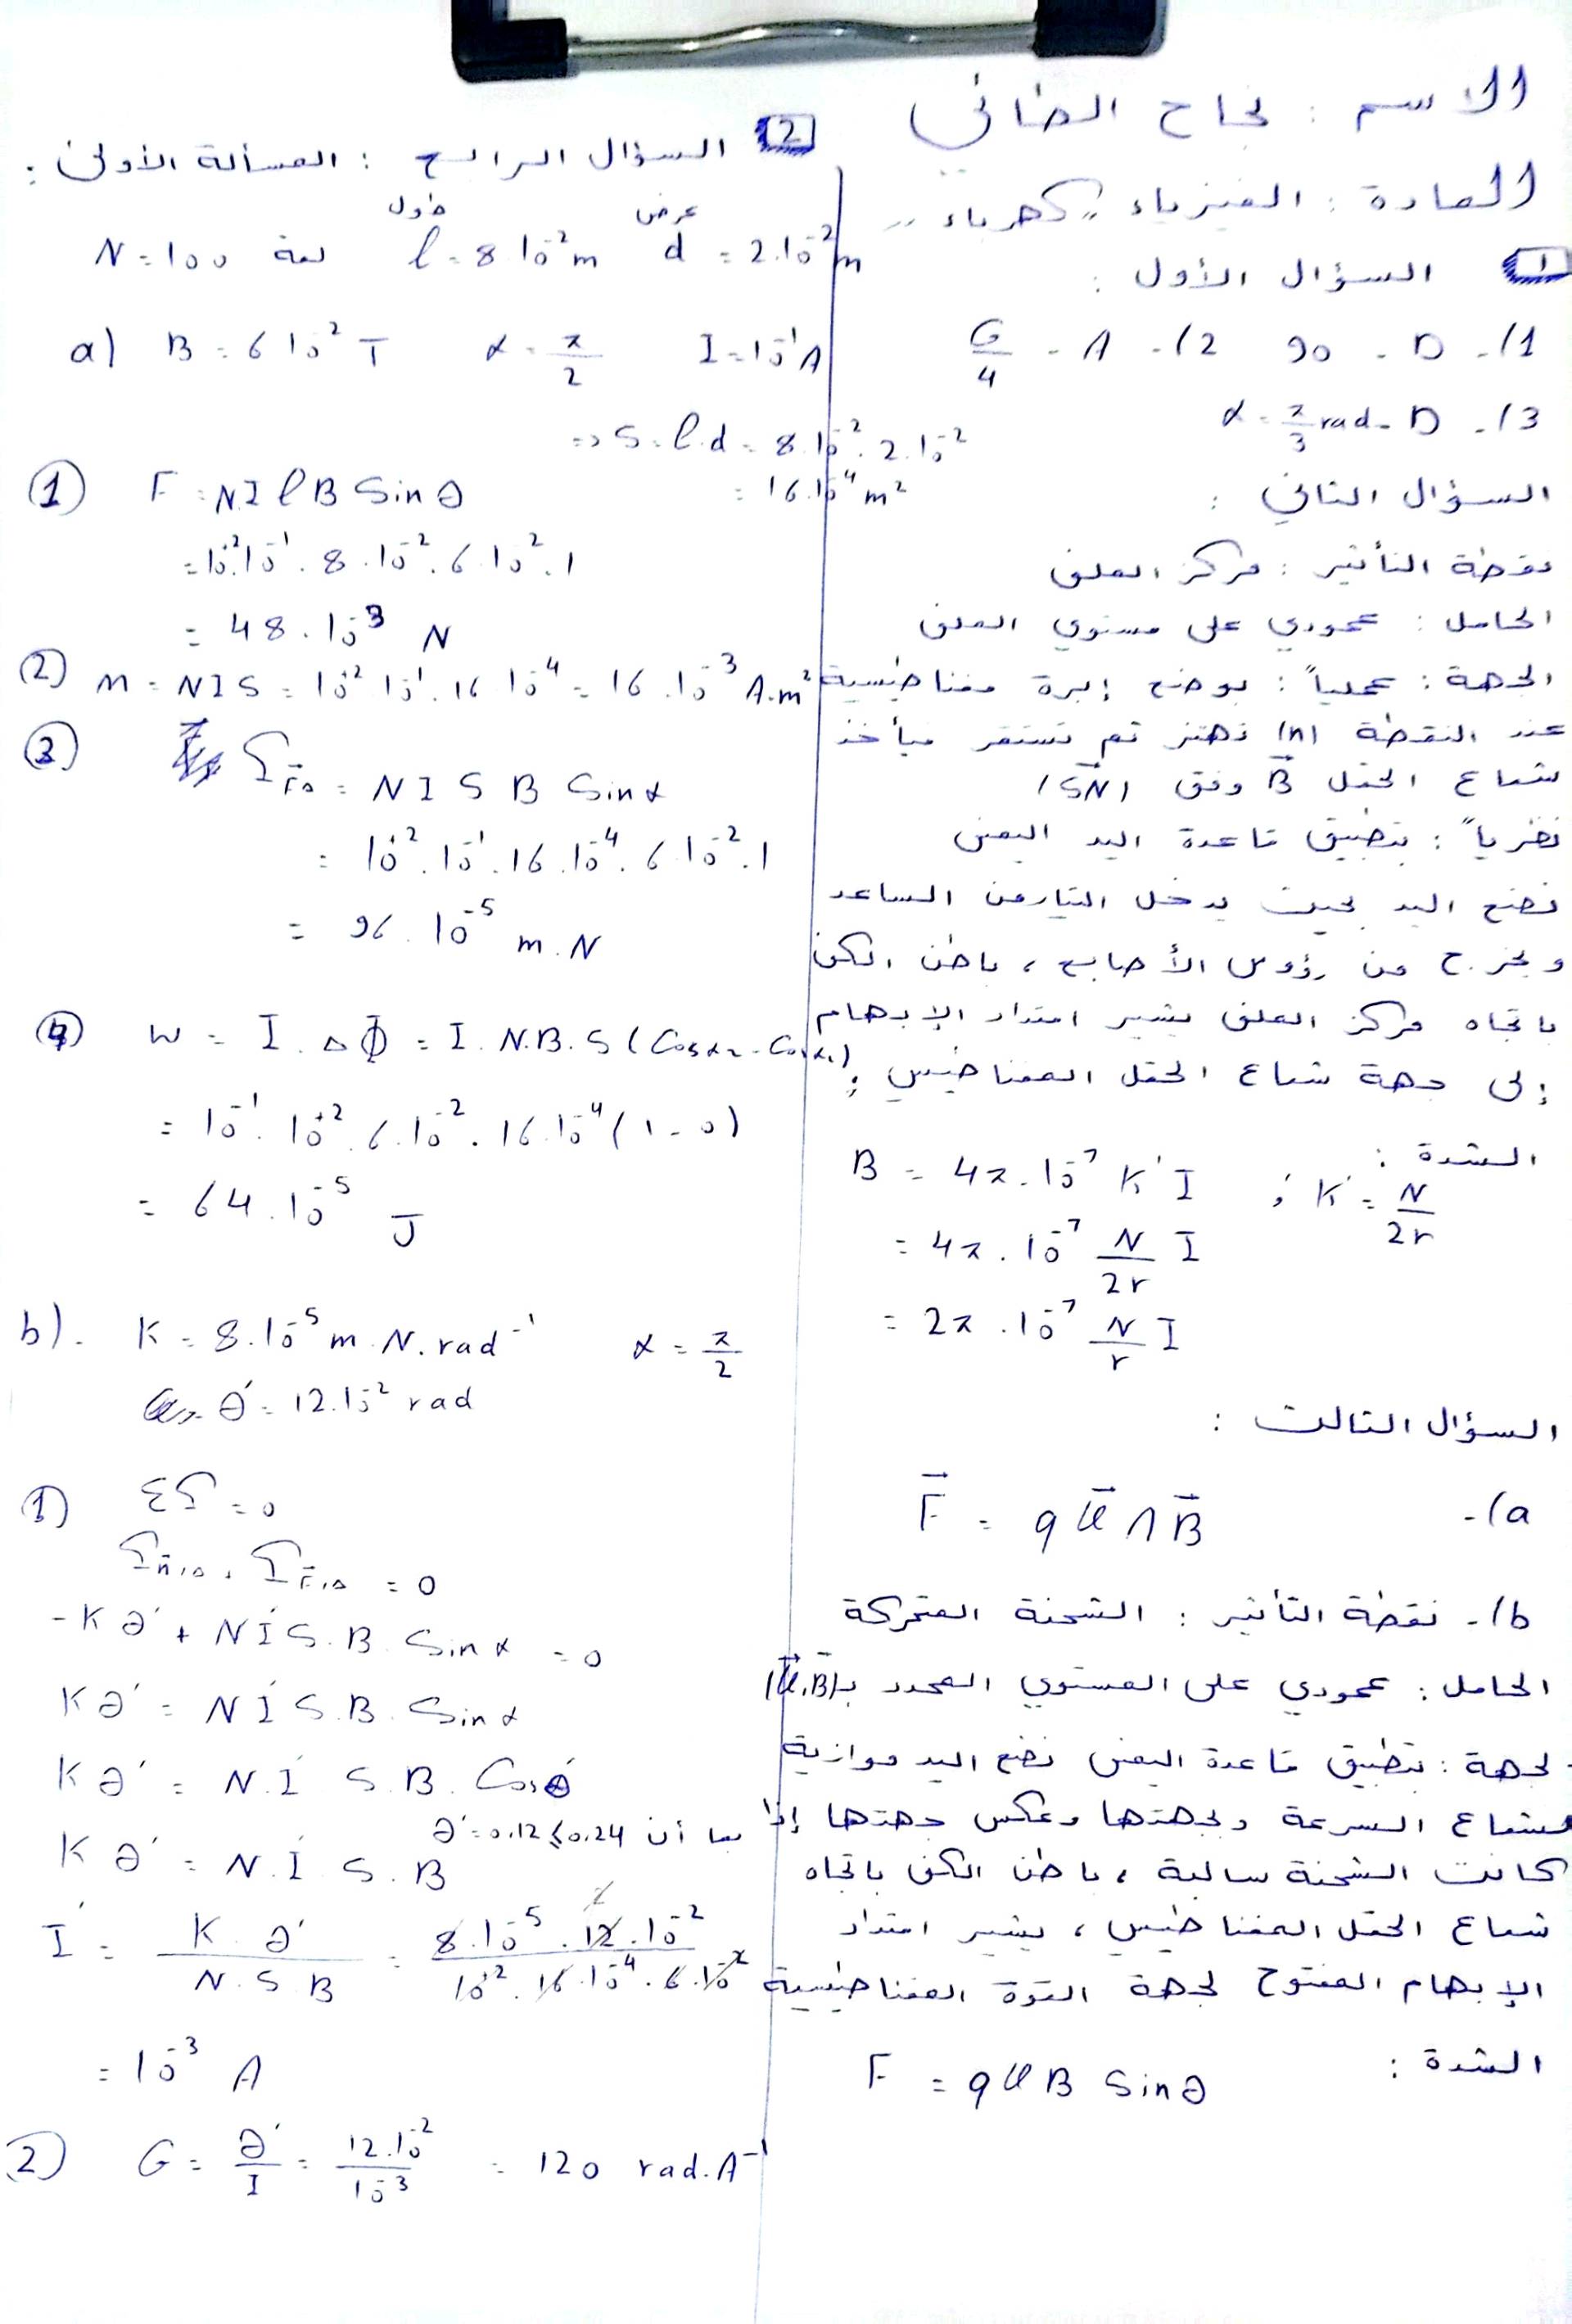 الاسم : نجاح الطائي
المادة : الفيزياء "كهرباء"
1 السؤال الأول :
1)- D - 90 2)- A - G/4
3)- D - α = π/3 rad
السؤال الثاني :
نقطة التأثير : مركز الملف
الحامل : عمودي على مستوي الملف
الجهة : عملياً : بوضع إبرة مغناطيسية
عند النقطة (n) تهتز ثم تستقر فيأخذ
شعاع الحقل B⃗ وفق (SN)
نظرياً : بتطبيق قاعدة اليد اليمنى
نضع اليد بحيث يدخل التيار من الساعد
ويخرج من رؤوس الأصابع ، باطن الكف
باتجاه مركز الملف يشير امتداد الإبهام
إلى جهة شعاع الحقل المغناطيسي ;
الشدة : B = 4π.10⁻⁷ K' I ; K' = N/2r
= 4π.10⁻⁷ N/2r I
= 2π.10⁻⁷ N/r I
السؤال الثالث :
a)- F⃗ = q v⃗ ∧ B⃗
b)- نقطة التأثير : الشحنة المتحركة
الحامل : عمودي على المستوي المحدد بـ (v⃗, B⃗)
لجهة : بتطبيق قاعدة اليمنى نضع اليد موازية
لشعاع السرعة وبجهتها وعكس جهتها إذا
كانت الشحنة سالبة ، باطن الكف باتجاه
شعاع الحقل المغناطيسي ، يشير امتداد
الإبهام المفتوح لجهة القوة المغناطيسية
الشدة : F = q v B Sinθ
2 السؤال الرابع : المسألة الأولى :
طول عرض
N = 100 لفة l = 8.10⁻² m d = 2.10⁻² m
a) B = 6 10⁻² T α = π/2 I = 10⁻¹ A
=> S = l.d = 8.10⁻² . 2.10⁻²
= 16.10⁻⁴ m²
(1) F = N I l B Sin θ
= 10⁺².10⁻¹ . 8.10⁻² . 6.10⁻² . 1
= 48.10⁻³ N
(2) M = N I S = 10⁺² 10⁻¹ . 16 10⁻⁴ = 16.10⁻³ A.m²
(3) Γ_F⃗Δ = N I S B Sin α
= 10⁺² . 10⁻¹ . 16.10⁻⁴ . 6.10⁻² . 1
= 96.10⁻⁵ m.N
(4) W = I.ΔΦ = I.N.B.S (Cosα₂ - Cosα₁)
= 10⁻¹ . 10⁺² . 6.10⁻² . 16.10⁻⁴ (1 - 0)
= 64.10⁻⁵ J
b). K = 8.10⁻⁵ m.N.rad⁻¹ α = π/2
θ' = 12.10⁻² rad
(1) ΣΓ = 0
Γ_n⃗,Δ + Γ_F⃗,Δ = 0
-Kθ' + N I' S.B.Sin α = 0
Kθ' = N I' S.B.Sin α
Kθ' = N.I' S.B.Cosθ'
بما أن θ' = 0.12 ≤ 0.24
Kθ' = N.I' S.B
I' = K.θ' / N.S.B = 8.10⁻⁵ . 12.10⁻² / 10⁺² . 16.10⁻⁴ . 6.10⁻²
= 10⁻³ A
(2) G = θ'/I = 12.10⁻² / 10⁻³ = 120 rad.A⁻¹